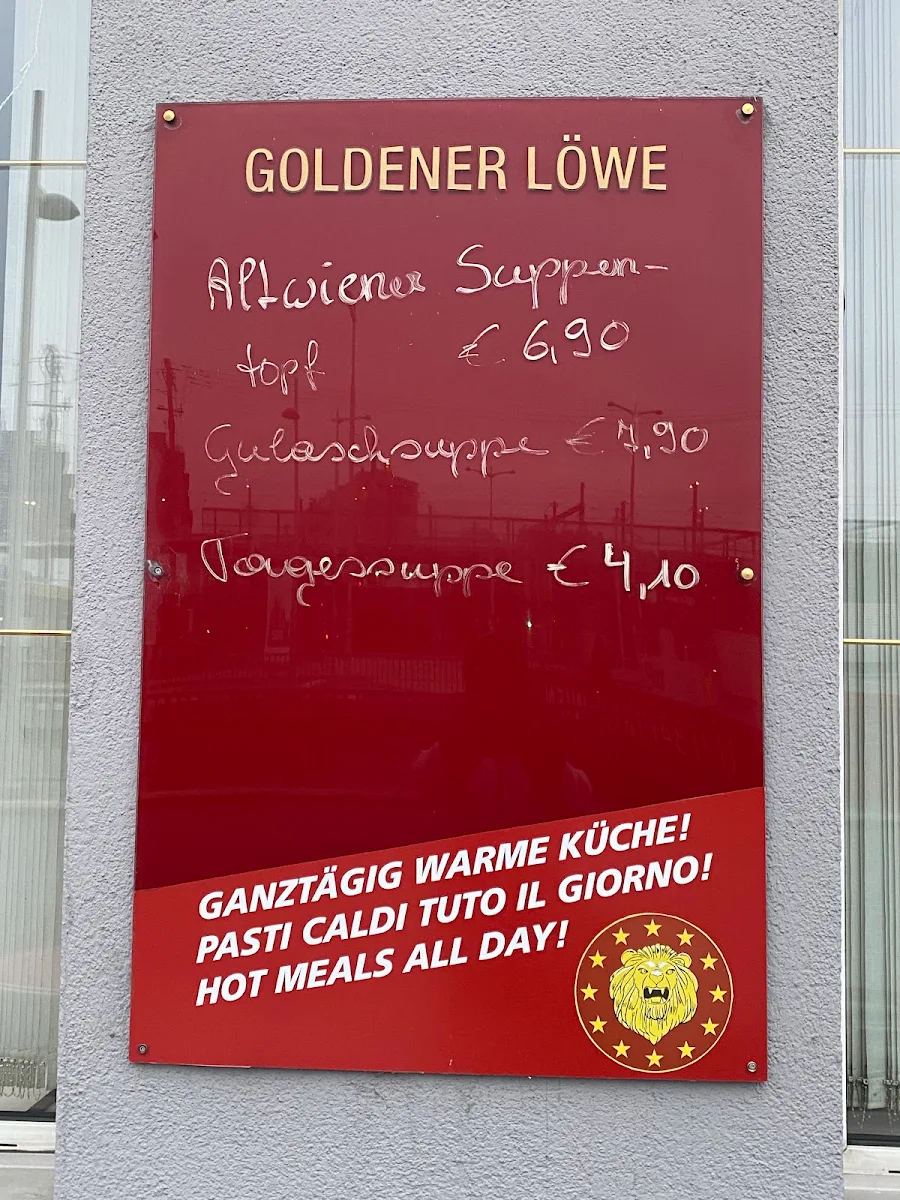 GOLDENER LÖWE
Altwiener Suppen-
topf € 6,90
Gulaschsuppe € 7,90
Tagessuppe € 4,10
GANZTÄGIG WARME KÜCHE!
PASTI CALDI TUTO IL GIORNO!
HOT MEALS ALL DAY!